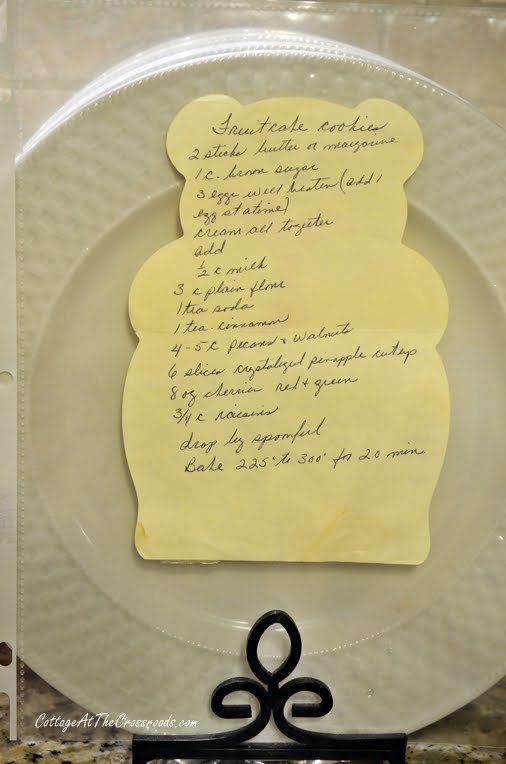 Fruitcake cookies
2 sticks butter or margarine
1 c. brown sugar
3 eggs well beaten (add 1
egg at a time)
cream all together
add
1/2 c milk
3 c plain flour
1 tea soda
1 tea. cinnamon
4-5 c pecans & walnuts
6 slices crystalized pineapple cut up
8 oz cherries red & green
3/4 c raisins
drop by spoonful
Bake 225° to 300° for 20 min.
CottageAtTheCrossroads.com